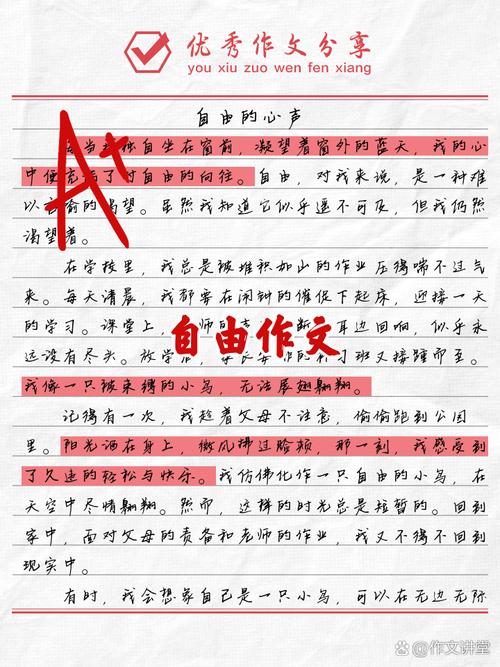 优秀作文分享
you xiu zuo wen fen xiang
自由的心声
A+
当 独自坐在窗前，凝望着窗外的蓝天，我的心
中便 了对自由的向往。自由，对我来说，是一种难
以 喻的渴望。虽然我知道它似乎遥不可及，但我仍然
渴望着。
在学校里，我总是被堆积如山的作业压得喘不过气
来。每天清晨，我都要在闹钟的催促下起床，迎接一天
的学习。课堂上， 师的 断 耳边回响，似乎永
自由作文
远没有尽头。放学 习班又接踵而至。
我像一只被束缚的小鸟，无法展翅翱翔。
记得有一次，我趁着父母不注意，偷偷跑到公园
里。阳光洒在身上，微风拂过脸颊，那一刻，我感受到
了久违的轻松与快乐。我仿佛化作一只自由的小鸟，在
天空中尽情翱翔。然而，这样的时光总是短暂的。回到
家中，面对父母的责备和老师的作业，我又不得不回到
现实中。
有时，我会想象自己是一只小鸟，可以在无边无际
@作文讲堂